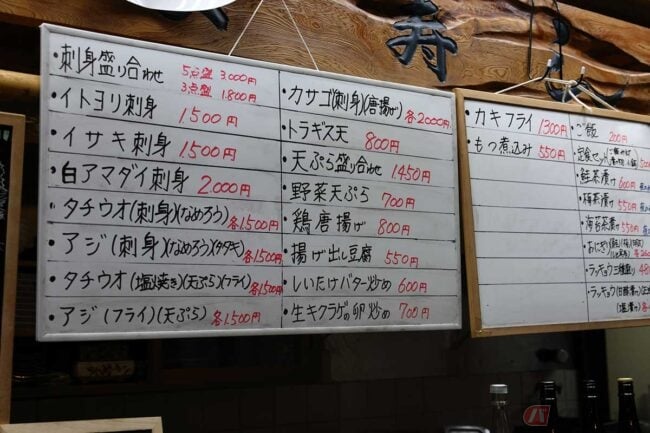 寿し
・刺身盛り合わせ 5点盛 3.000円
3点盛 1.800円
・イトヨリ刺身 1.500円
・イサキ刺身 1.500円
・白アマダイ刺身 2.000円
・タチウオ(刺身)(なめろう)各1.500円
・アジ(刺身)(なめろう)(タタキ)各1.500円
・タチウオ(塩焼き)(天ぷら)(フライ)各1.500円
・アジ(フライ)(天ぷら)各1.500円
・カサゴ(刺身)(唐揚げ)各2000円
・トラギス天 800円
・天ぷら盛り合わせ 1450円
・野菜天ぷら 700円
・鶏唐揚げ 800円
・揚げ出し豆腐 550円
・しいたけバター炒め 600円
・生キクラゲの卵炒め 700円
・カキフライ 1300円
・もつ煮込み 550円
・ご飯 200円
・定食セット
・鮭茶漬け 600円
・梅茶漬け 550円
・海苔茶漬け 550円
・おにぎり
・ラッキョウ三種盛り
・ラッキョウ(甘酢漬け)
(塩漬け)